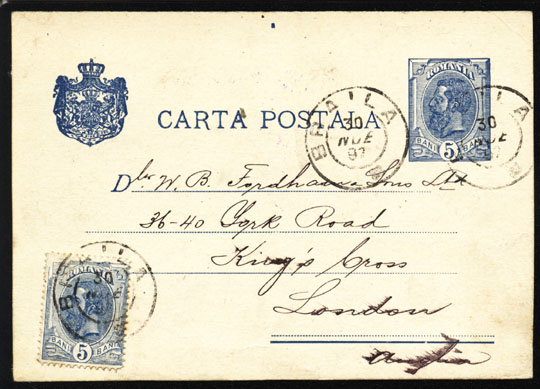 ROMANIA
BANI 5 BANI
CARTA POSTALA
BRAILA
30
NOE
97
BRAILA
30
NOE
97
D W. B. Fordham & Sons Ld
36-40 York Road
King's Cross
London
Anglia
ROMANIA
BANI 5 BANI
BRAILA
30